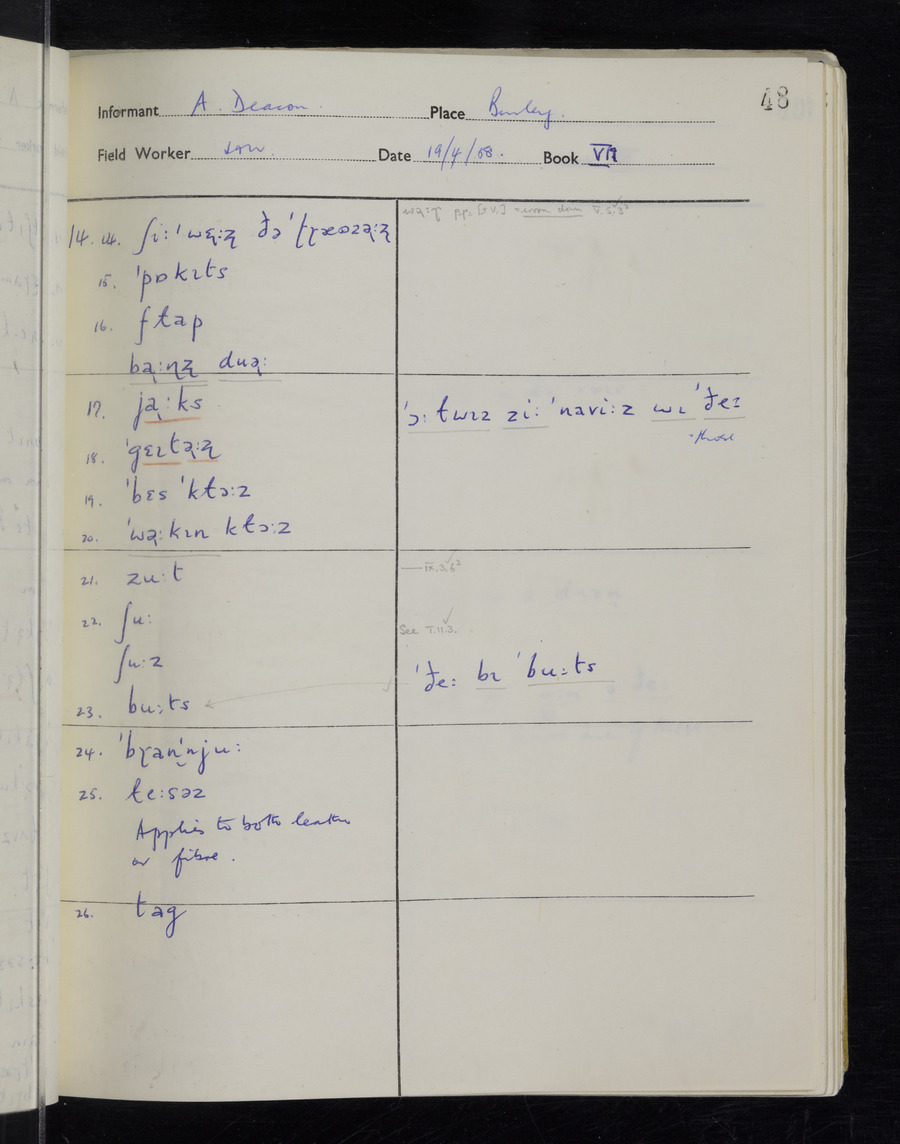 48
Informant A. Deacon. Place Burley.
Field Worker Date 19/4/58. Book VII
14. 14. ʃiː ˈwɛ̨ːʐ ðə ˈʈɽæʊzəʴːʐ
15. ˈpɒkɪts
16. ftap
bą:ɳʐ duə̢:
17. ją:ks
18. ˈgɛɪtə̢:ʐ
19. ˈbɛs ˈktɔ:z
20. ˈwə̢:kɪn ktɔ:z
21. zu:t
22. ʃu:
ʃu:z
23. bu:ts
24. ˈbɽanˈnju:
25. te:səz
Applies to both leather
or fibre.
26. tag
pp. [+V.] worn down V.5.3²
ˈɔ: twɪz zi: ˈnavi:z wɪ ˈðeɪ
those
IX.3.6²
See I.11.3.
ˈðe: bɪ ˈbu:ts